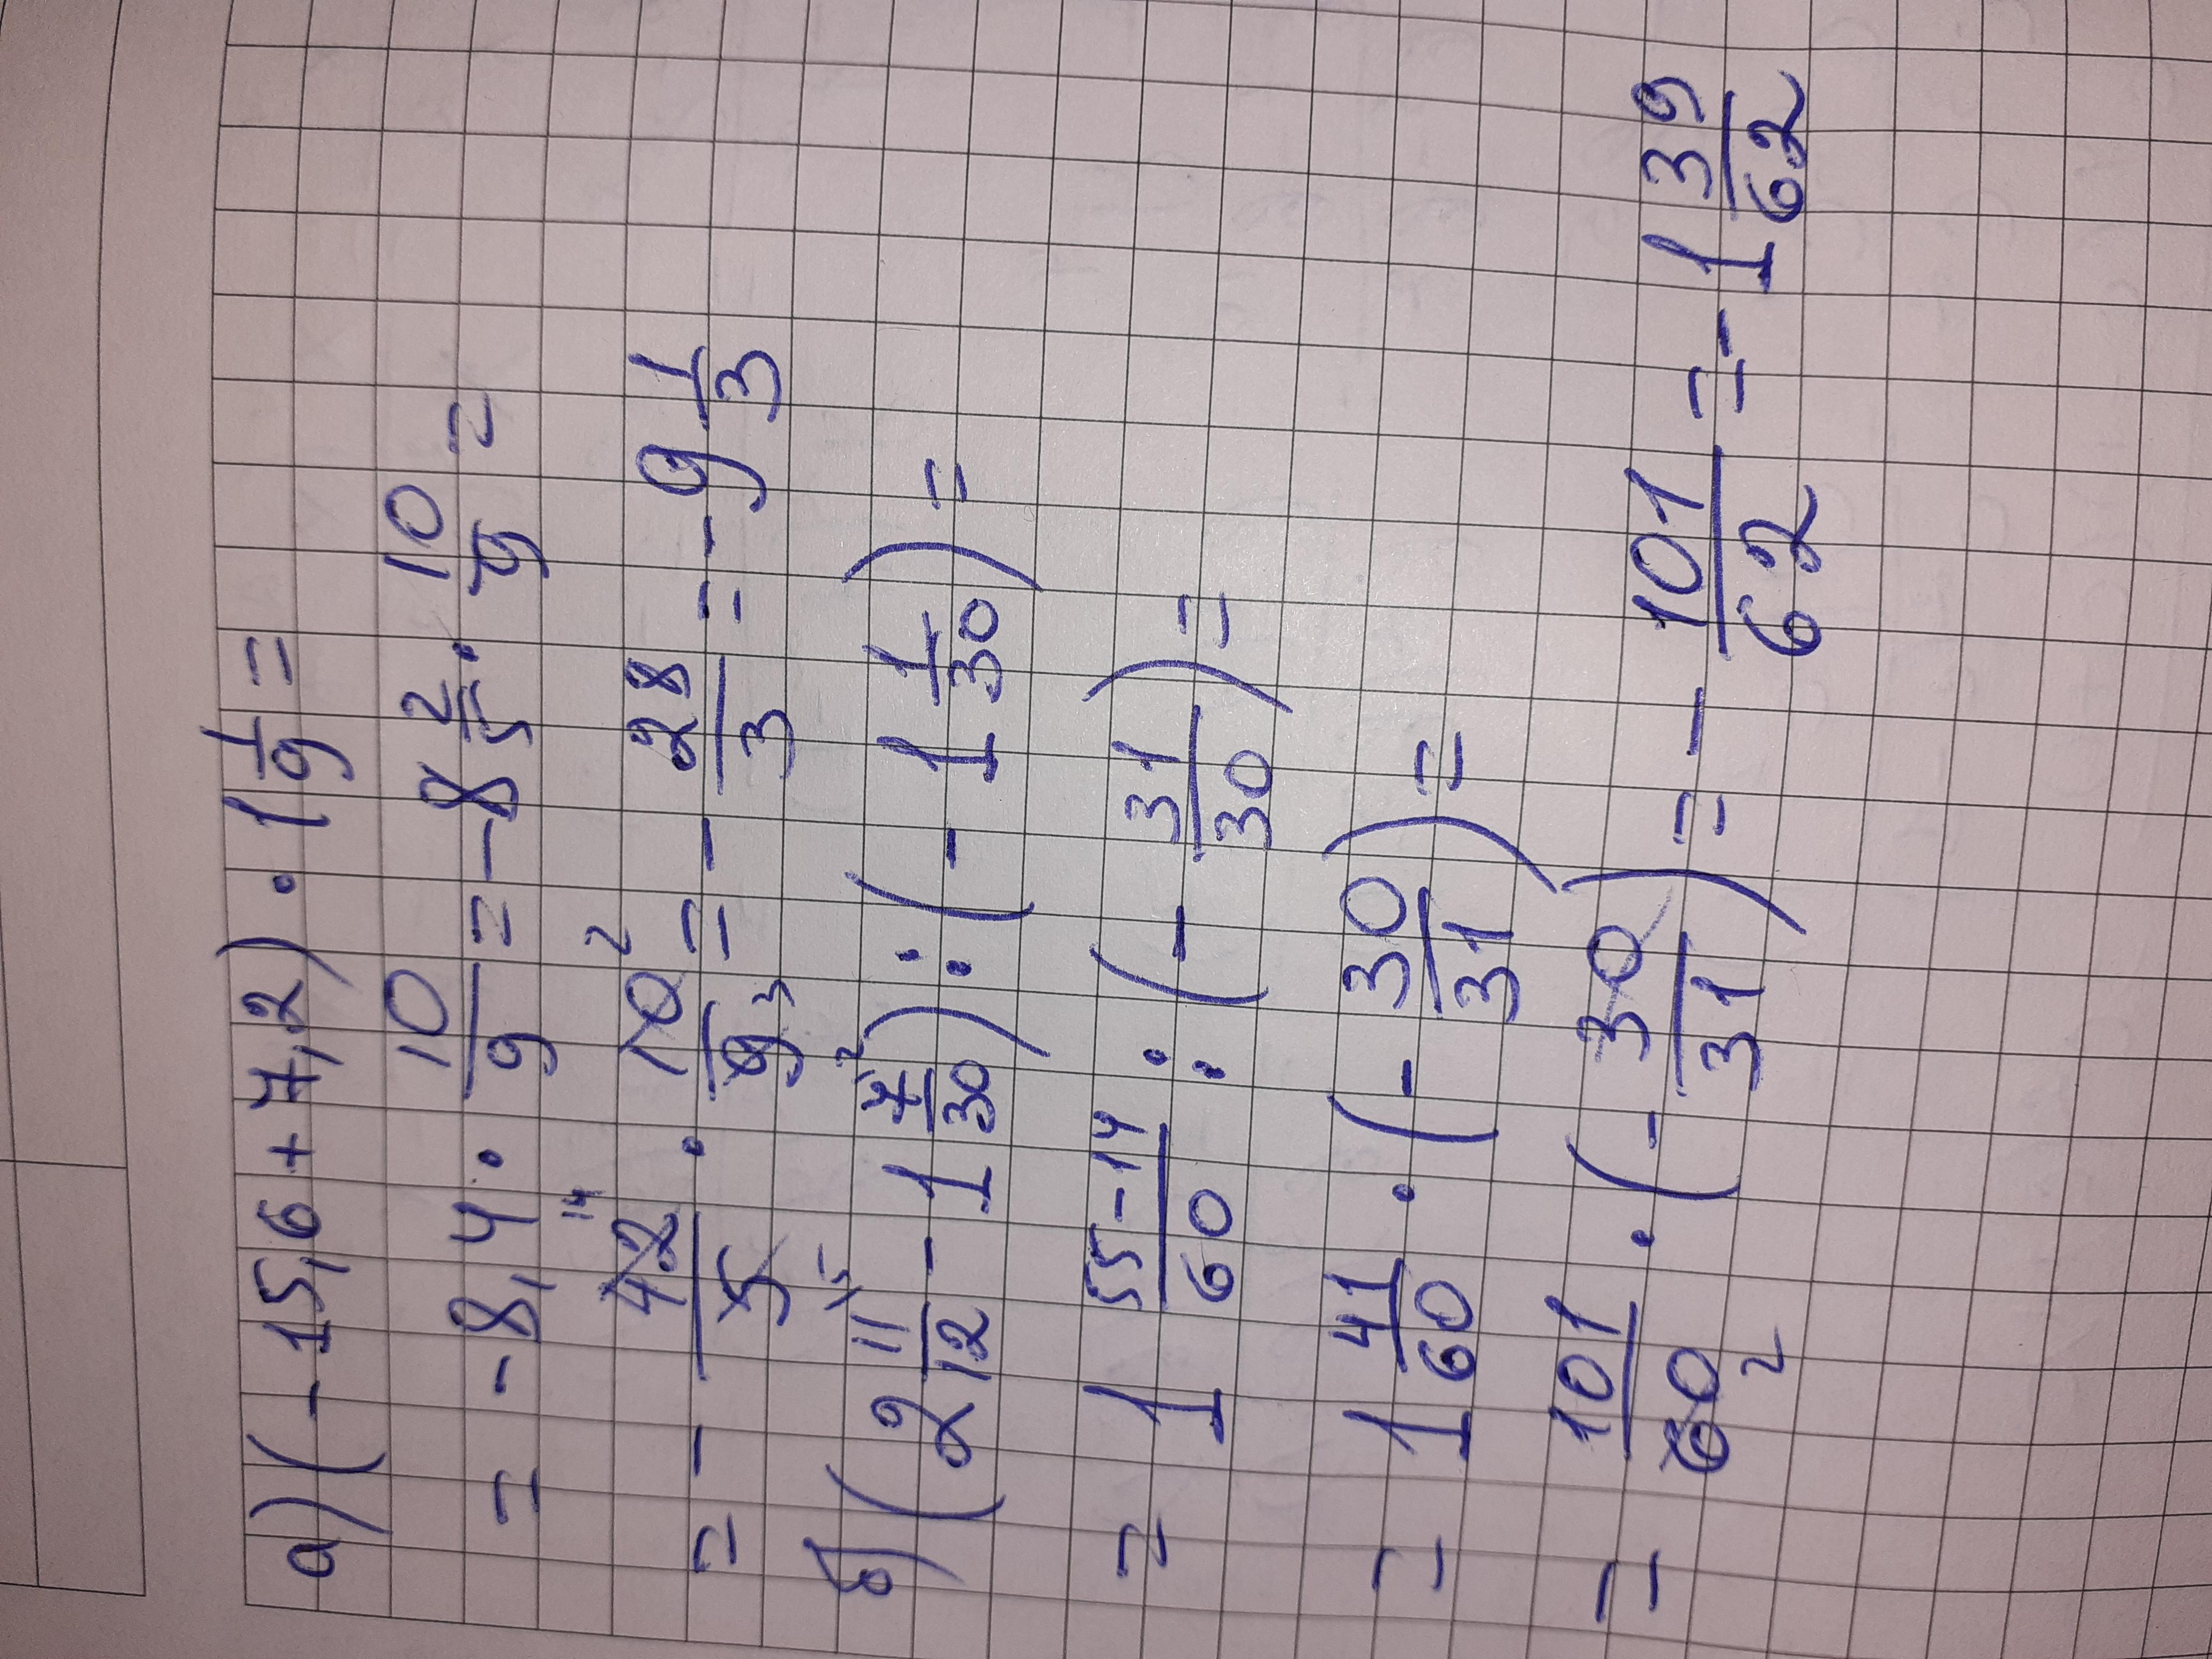 а) (- 15,6 + 7,2) · 1 1/9 =
= - 8,4 · 10/9 = - 8 2/5 · 10/9 =
= - 42/5 14 · 10/9 2 3 = - 28/3 = - 9 1/3
б) (2 11/12 5 - 1 7/30 2) : (- 1 1/30) =
= 1 55-14/60 : (- 31/30) =
= 1 41/60 · (- 30/31) =
= 101/60 2 · (- 30/31) = - 101/62 = - 1 39/62